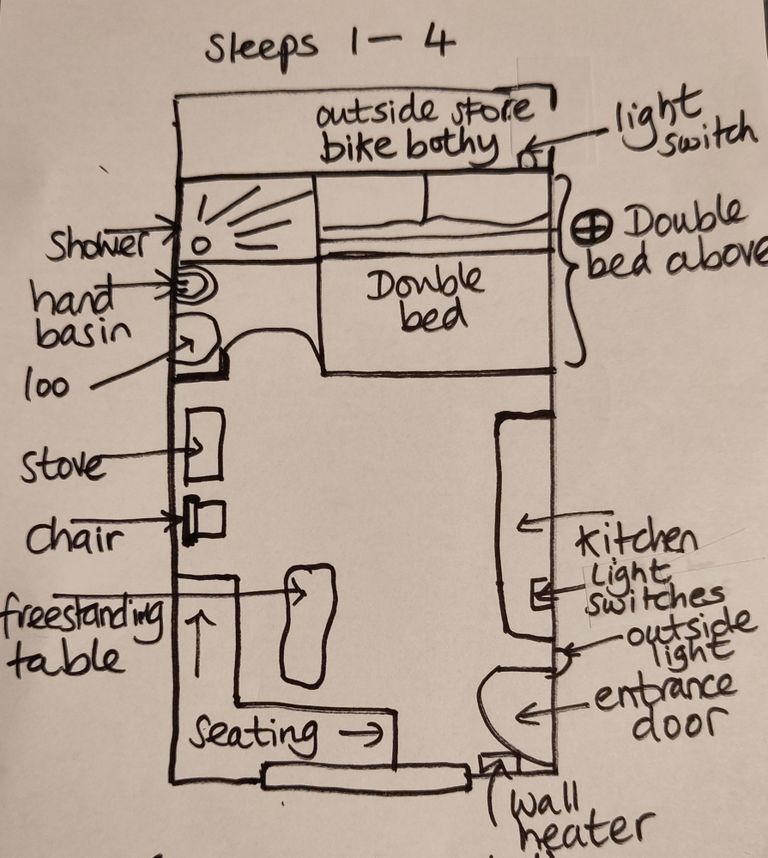 Sleeps 1 - 4
outside store
bike bothy
light
switch
Shower
⊕ Double
bed above
hand
basin
Double
bed
loo
Stove
Chair
Kitchen
Light
switches
freestanding
table
outside
light
entrance
door
Seating
wall
heater